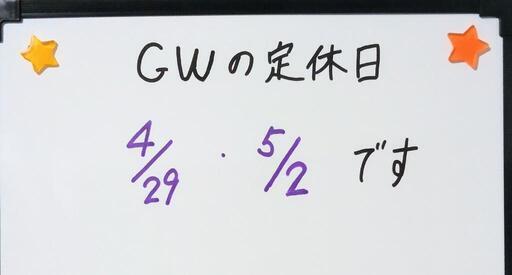 GWの定休日
4/29・5/2 です